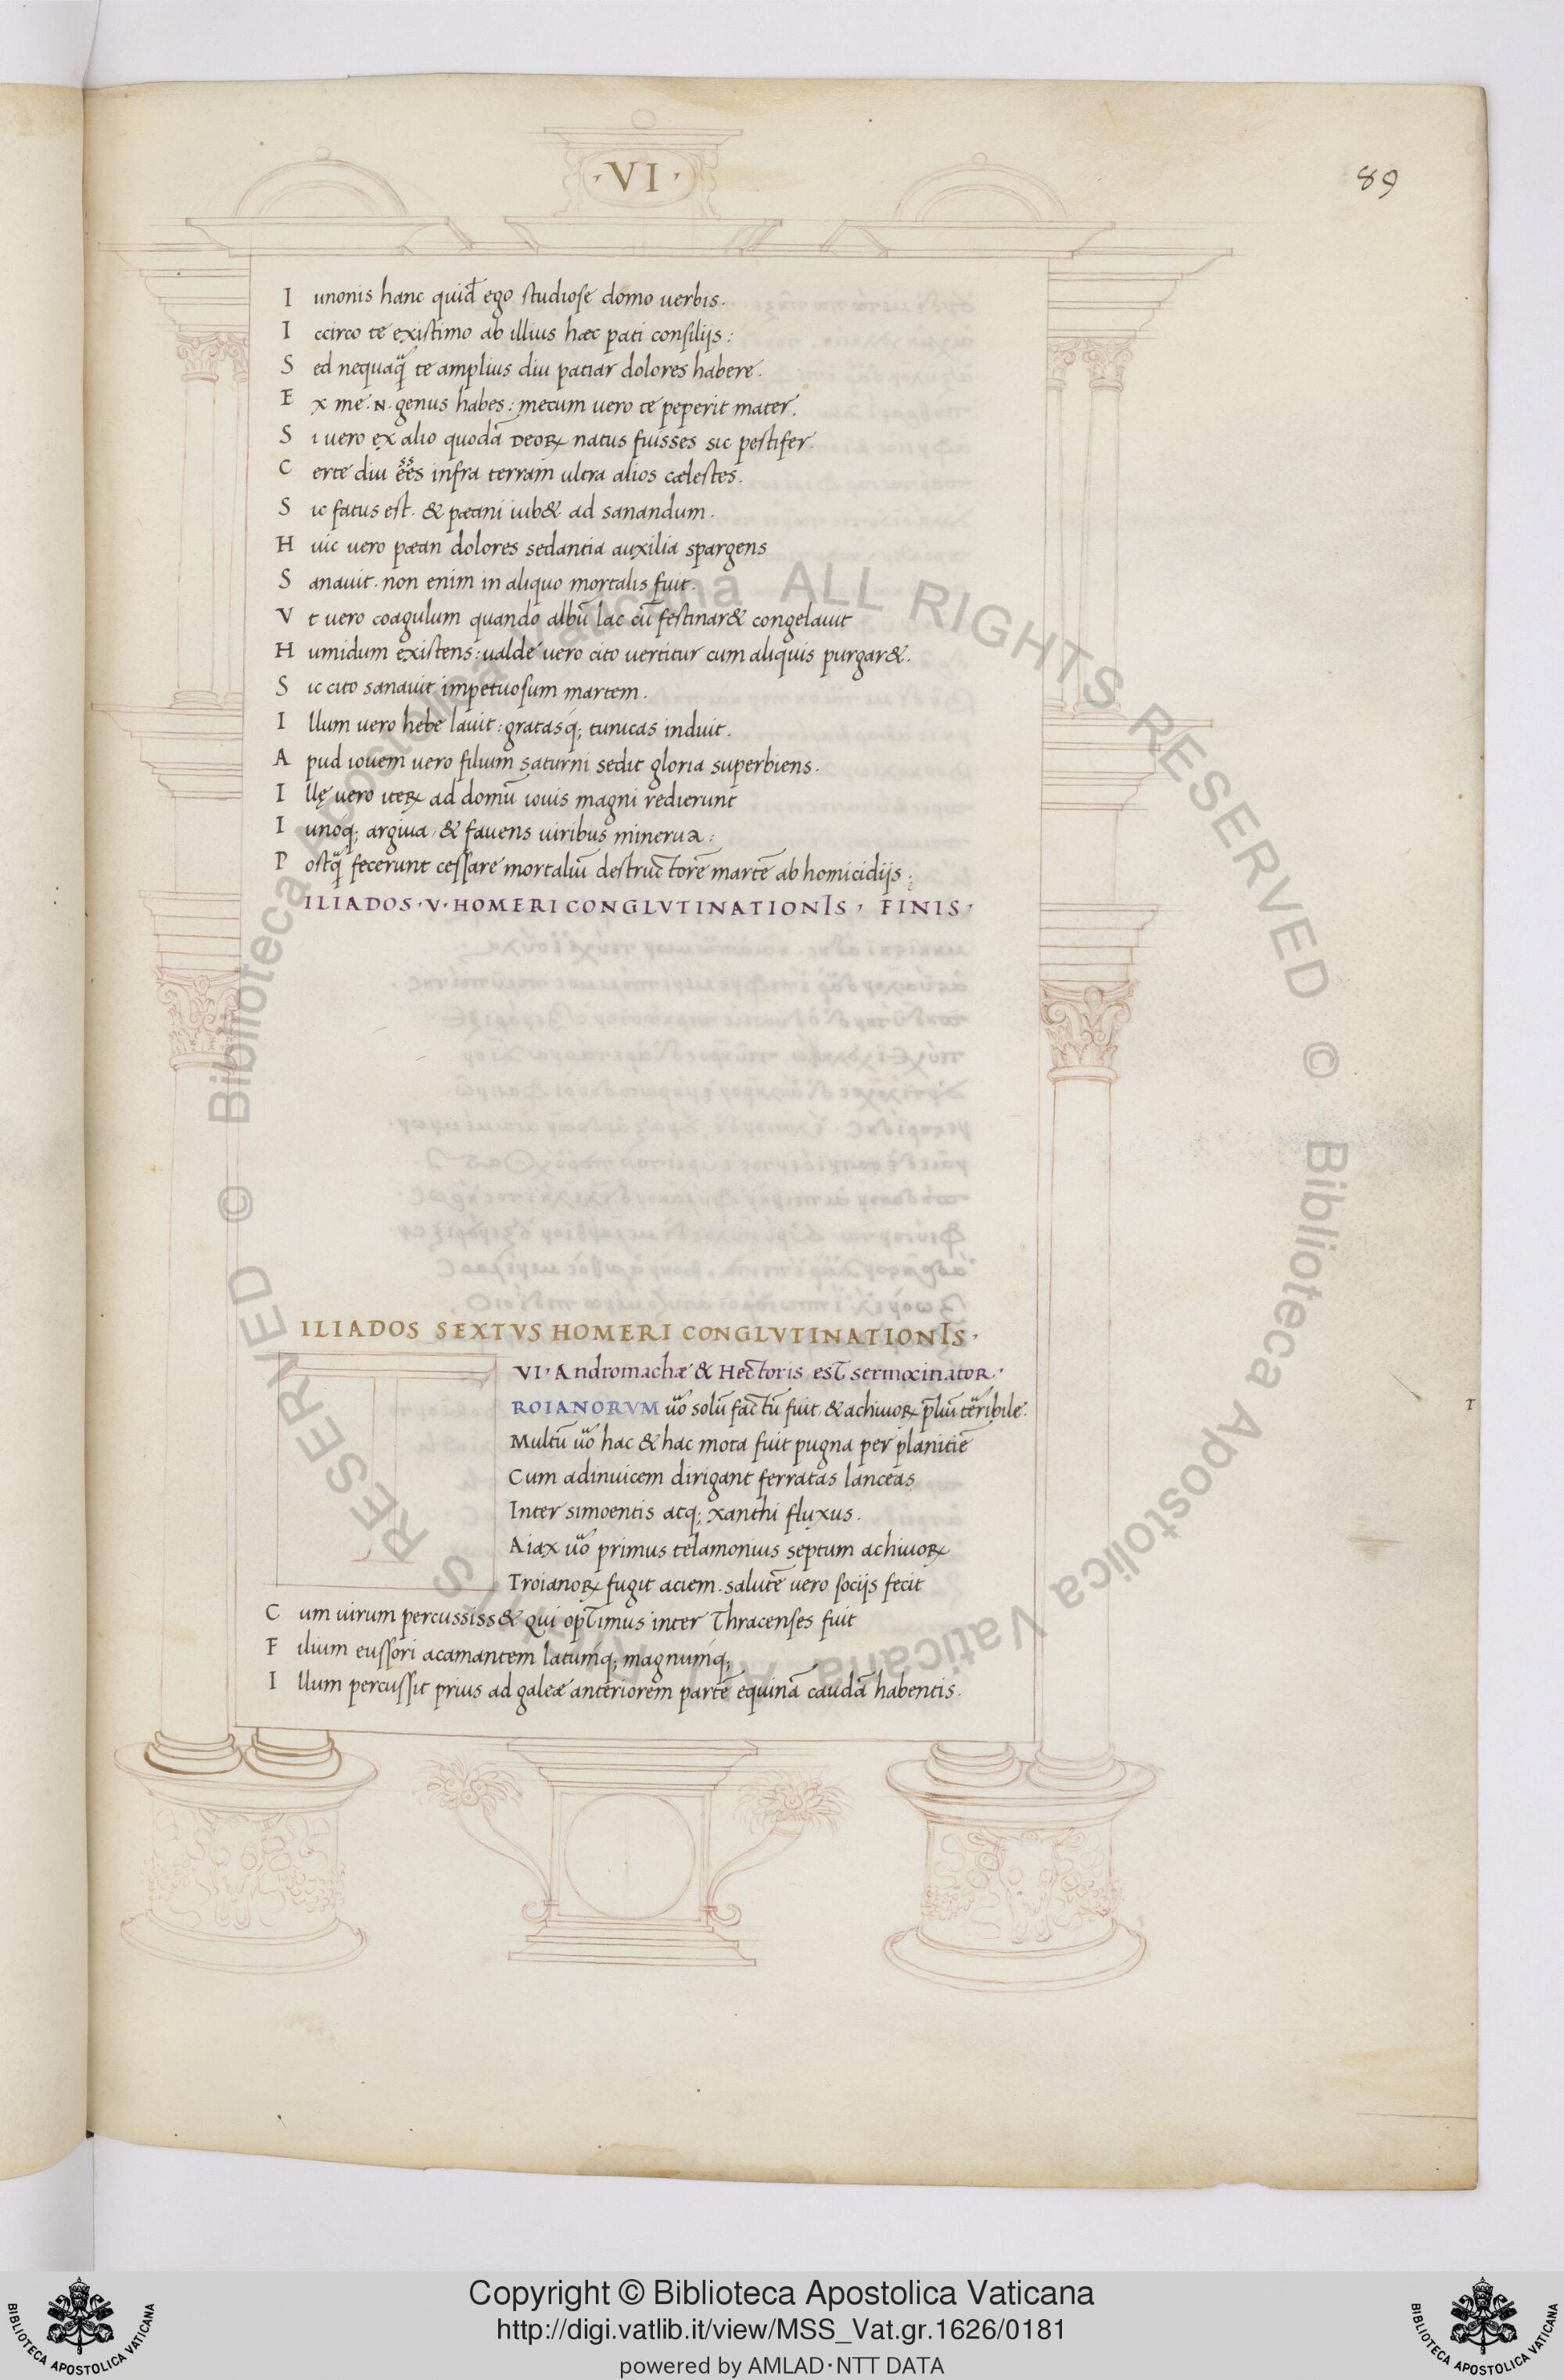 ·VI·
89
I unonis hanc quid̄ ego studiose domo uerbis.
I ccirco te existimo ab illius hæc pati consilijs:
S ed nequaq̃ te amplius diu patiar dolores habere.
E x me .N. genus habes: mecum uero te peperit mater.
S i uero ex alio quodã DEORꝝ natus fuisses sic pestifer.
C erte diu ẽẽs infra terram ultra alios cælestes.
S ic fatus est. & pæani iub& ad sanandum.
H uic uero pæan dolores sedantia auxilia spargens
S anauit. non enim in aliquo mortalis fuit.
V t uero coagulum quando albũ lac cũ festinar& congelauit
H umidum existens: ualde uero cito uertitur cum aliquis purgar&.
S ic cito sanauit impetuosum martem.
I llum uero hebe lauit: gratasq́; tunicas induit.
A pud iouem uero filium saturni sedit gloria superbiens.
I llę uero iteꝝ ad domũ iouis magni redierunt
I unoq; argiua, & fauens uiribus minerua:
P ostq̃ fecerunt cessare mortaliũ destructorẽ martẽ ab homicidijs:
ILIADOS·V·HOMERI CONGLVTINATIONIS, FINIS,
ILIADOS SEXTVS HOMERI CONGLVTINATIONIS·
VI·Andromachæ & Hectoris est sermocinatoR·
ROIANORVM ũo solũ factũ fuit, & achiuoꝝ p̄liũ teribile.
Multũ ũo hac & hac mota fuit pugna per planitiẽ
Cum adinuicem dirigant ferratas lanceas
Inter simoentis atq; xanthi fluxus.
Aiax ũo primus telamonius septum achiuoꝝ
Troianoꝝ fugit aciem. salutẽ uero socijs fecit
T
C um uirum percussiss& qui optimus inter Thracenses fuit
F ilium eussori acamantem latumq́; magnumq́;
I llum percussit prius ad galeæ anteriorem partẽ equinã caudã habentis.
© Biblioteca Apostolica Vaticana ALL RIGHTS RESERVED © Biblioteca Apostolica Vaticana ALL RIGHTS RESERVED
Copyright © Biblioteca Apostolica Vaticana
http://digi.vatlib.it/view/MSS_Vat.gr.1626/0181
powered by AMLAD·NTT DATA
BIBLIOTECA APOSTOLICA VATICANA
BIBLIOTECA APOSTOLICA VATICANA